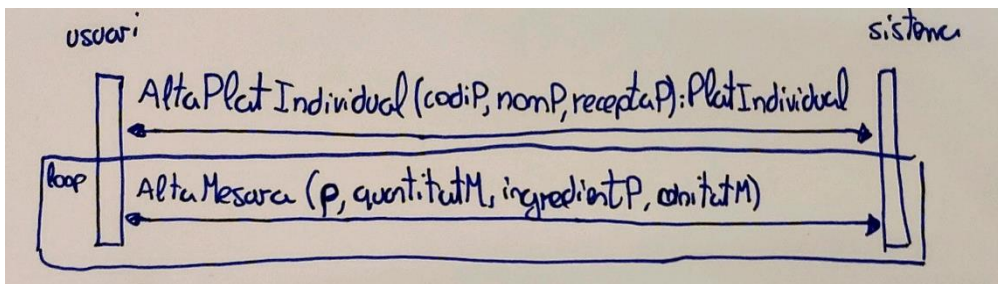 usuari
sistema
AltaPlatIndividual(codiP, nomP, receptaP): PlatIndividual
loop
AltaMesura (p, quantitatM, ingredientP, unitatM)